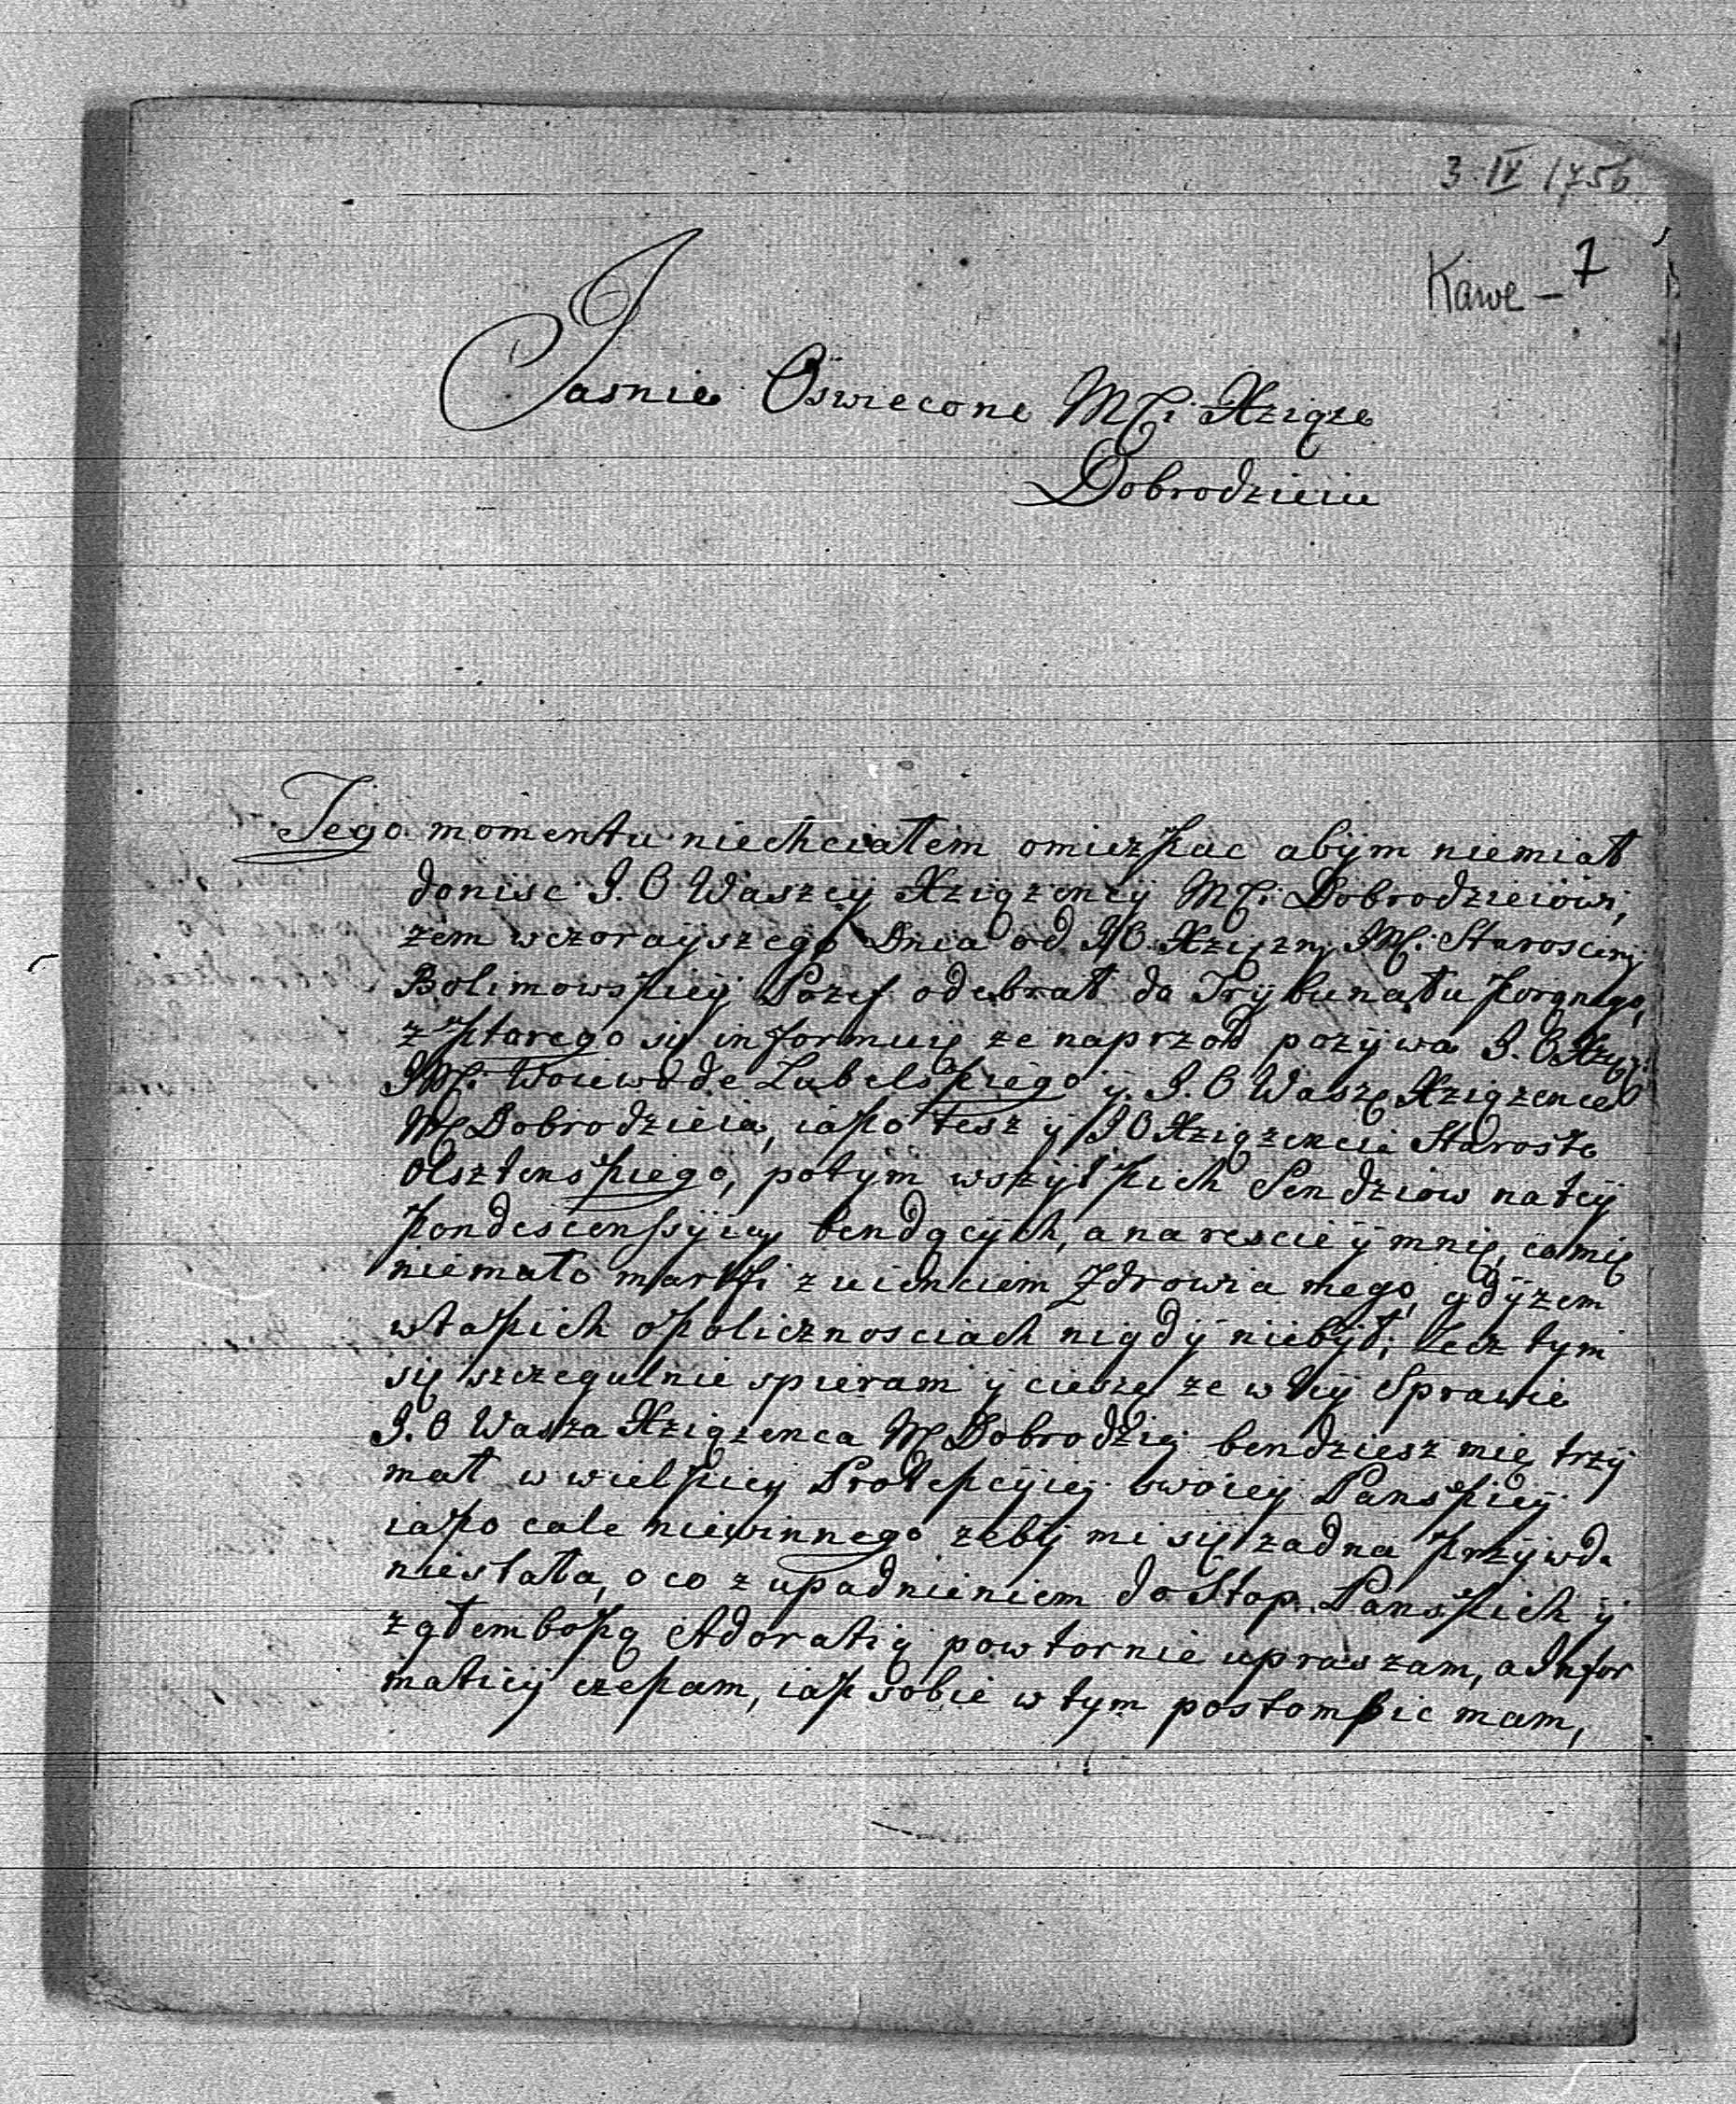 3. IV 1756
Kawe - 7
Jasnie Oswiecone MCi Xziąże
Dobrodzieiu
Tego momentu niechciałem omieszkac abÿm niemiał
doniść J. O Waszeÿ Xziążęncÿ MCi Dobrodzieiowi,
żem wczoraÿszego Dnia od JO. Xziężnÿ JMCi Starosciny
Bolimowskieÿ Pozef odebrał do Trÿbunału korąnego,
z ktorego się informuię że naprzod pozÿwa J. O Xzcia
JMCi Woiewode Lubelskiego ÿ. J. O Waszę Xziążęncę
MC Dobrodzieia, iako tesz ÿ JO Xziążencie Staroste
Olsztenskiego, potym wszÿtkich Sendziow na teÿ
kondescenssÿieÿ bendącÿch, a na rescie ÿ mnię, co mię
niemało martfi z uienciem Zdrowia mego, gdÿżem
w takich okolicznosciach nigdÿ niebÿł; Lecz tym
się szczegulnie spieram ÿ cieszę że w teÿ Sprawie
J. O Wasza Xziążenca MC Dobrodzieÿ bendziesz mię trzÿ
mał w wielkieÿ Protekcÿieÿ swoieÿ Panskieÿ
iako cale niewinnego zebÿ mi się żadna krzÿwda
niestała, o co z upadnieniem do Stop Panskich ÿ
z głemboką Adoratią powtornie upraszam, a Infor
matieÿ czekam, iak sobie w tym postompic mam,